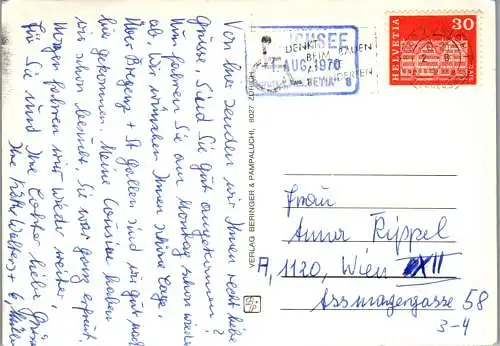 Von hier senden wir Ihnen recht liebe
Grüsse. Sind Sie gut angekommen?
Nun fahren Sie am Montag schon wieder
ab. Wir wünschen Ihnen schöne Tage.
Über Bregenz + St. Gallen sind wir gut nach
hier gekommen. Meine Cousine haben
wir schon besucht, sie war ganz erfreut.
Morgen fahren wir wieder weiter.
Für Sie und Ihre Tochter liebe Grüsse
Ihre Käthe Walters +
VERLAG BERINGER & PAMPALUCHI, 8027 ZÜRICH
DENKT
BEIM BADEN
AUG. 1970
HELVETIA
30
Frau
Anna Rippel
A, 1120, Wien XII
Assmayergasse 58
3-4